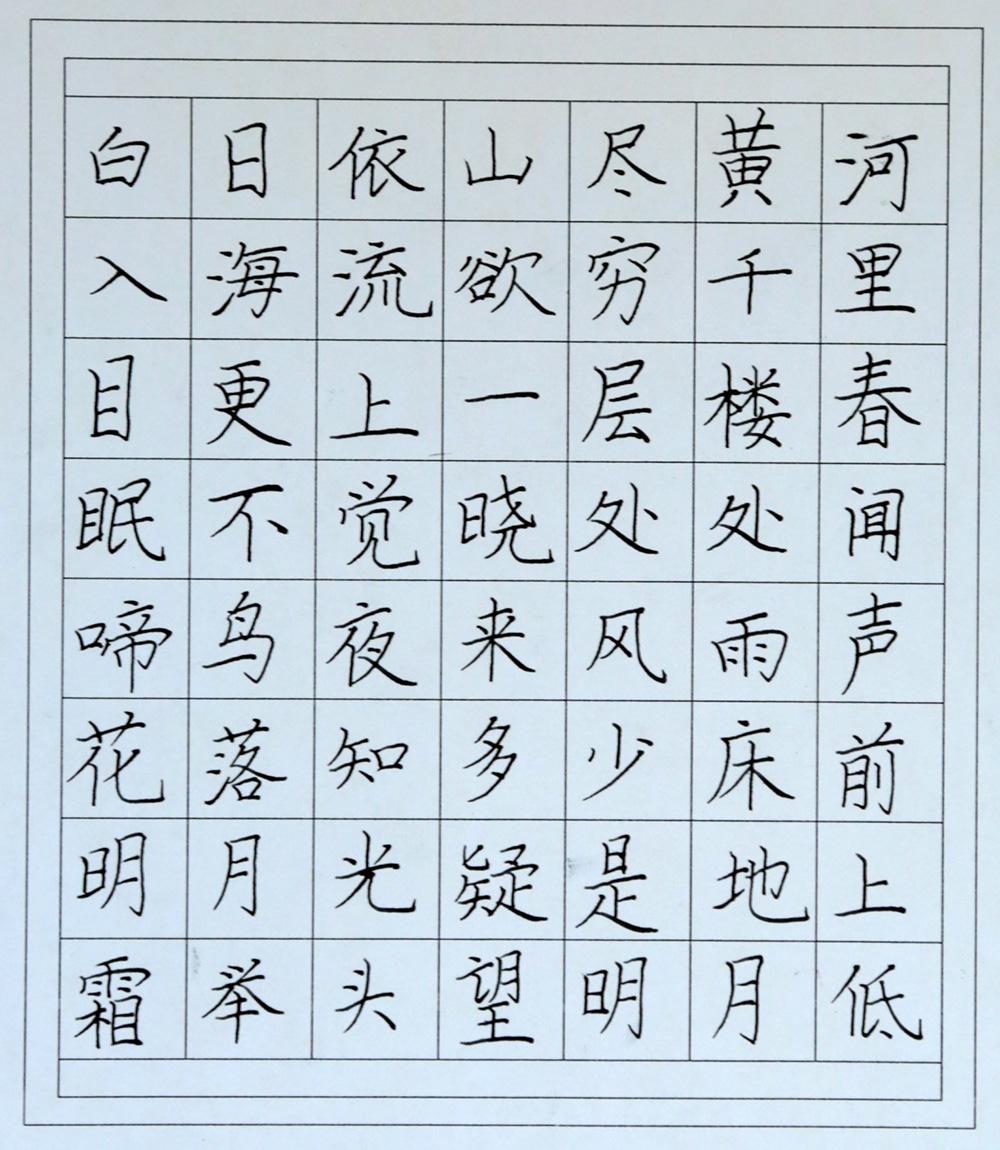 白日依山尽黄河
入海流欲穷千里
目更上一层楼春
眠不觉晓处处闻
啼鸟夜来风雨声
花落知多少床前
明月光疑是地上
霜举头望明月低